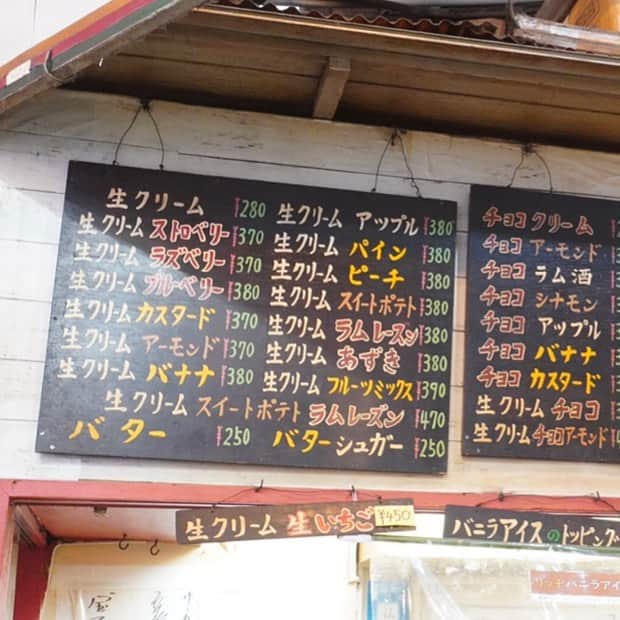 生クリーム ¥280
生クリーム ストロベリー ¥370
生クリーム ラズベリー ¥370
生クリーム ブルーベリー ¥380
生クリーム カスタード ¥370
生クリーム アーモンド ¥370
生クリーム バナナ ¥380
生クリーム アップル ¥380
生クリーム パイン ¥380
生クリーム ピーチ ¥380
生クリーム スイートポテト ¥380
生クリーム ラムレーズン ¥380
生クリーム あずき ¥380
生クリーム フルーツミックス ¥390
生クリーム スイートポテト ラムレーズン ¥470
バター ¥250
バターシュガー ¥250
チョコ クリーム
チョコ アーモンド
チョコ ラム酒
チョコ シナモン
チョコ アップル
チョコ バナナ
チョコ カスタード
生クリーム チョコ
生クリーム チョコアーモンド
生クリーム 生いちご ¥450
バニラアイスのトッピング
リッチバニラアイ